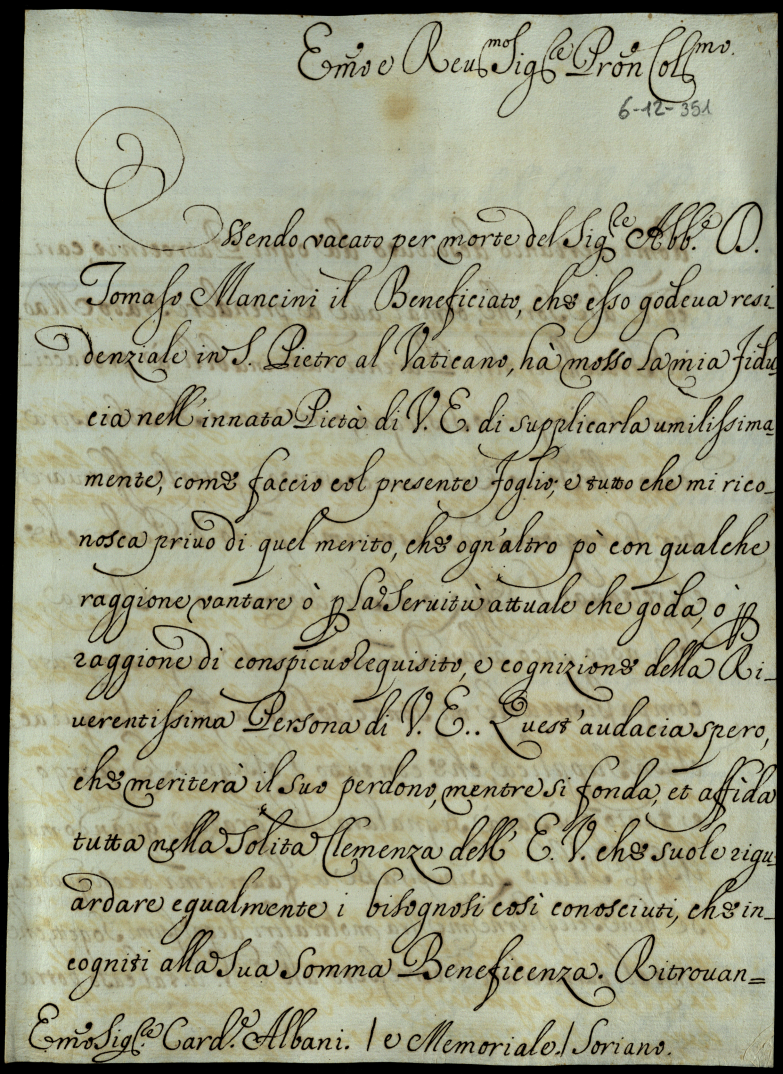 Emõ e Reu.mo Sig.re Prõn Coll.mo
6-12-351
Essendo vacato per morte del Sig.re Abb.e D.
Tomaso Mancini il Beneficiato, che esso godeva resi-
denziale in S. Pietro al Vaticano, hà mosso la mia Fidu-
cia nell'innata Pietà di V. E. di supplicarla umilissima-
mente, come faccio col presente Foglio; e tutto che mi rico-
nosca privo di quel merito, che ogn'altro pò con qualche
raggione vantare ò p la Servitù attuale che goda, ò p
raggione di conspicuo Requisito, e cognizione della Ri-
verentissima Persona di V. E.. Quest'audacia spero,
che meriterà il suo perdono, mentre si fonda, et affida
tutta nella Solita Clemenza dell' E. V. che suole rigu-
ardare egualmente i bisognosi così conosciuti, che in-
cogniti alla Sua Somma Beneficenza. Ritrovan=
Emõ Sig.re Card.e Albani. | e Memoriale. | Soriano.